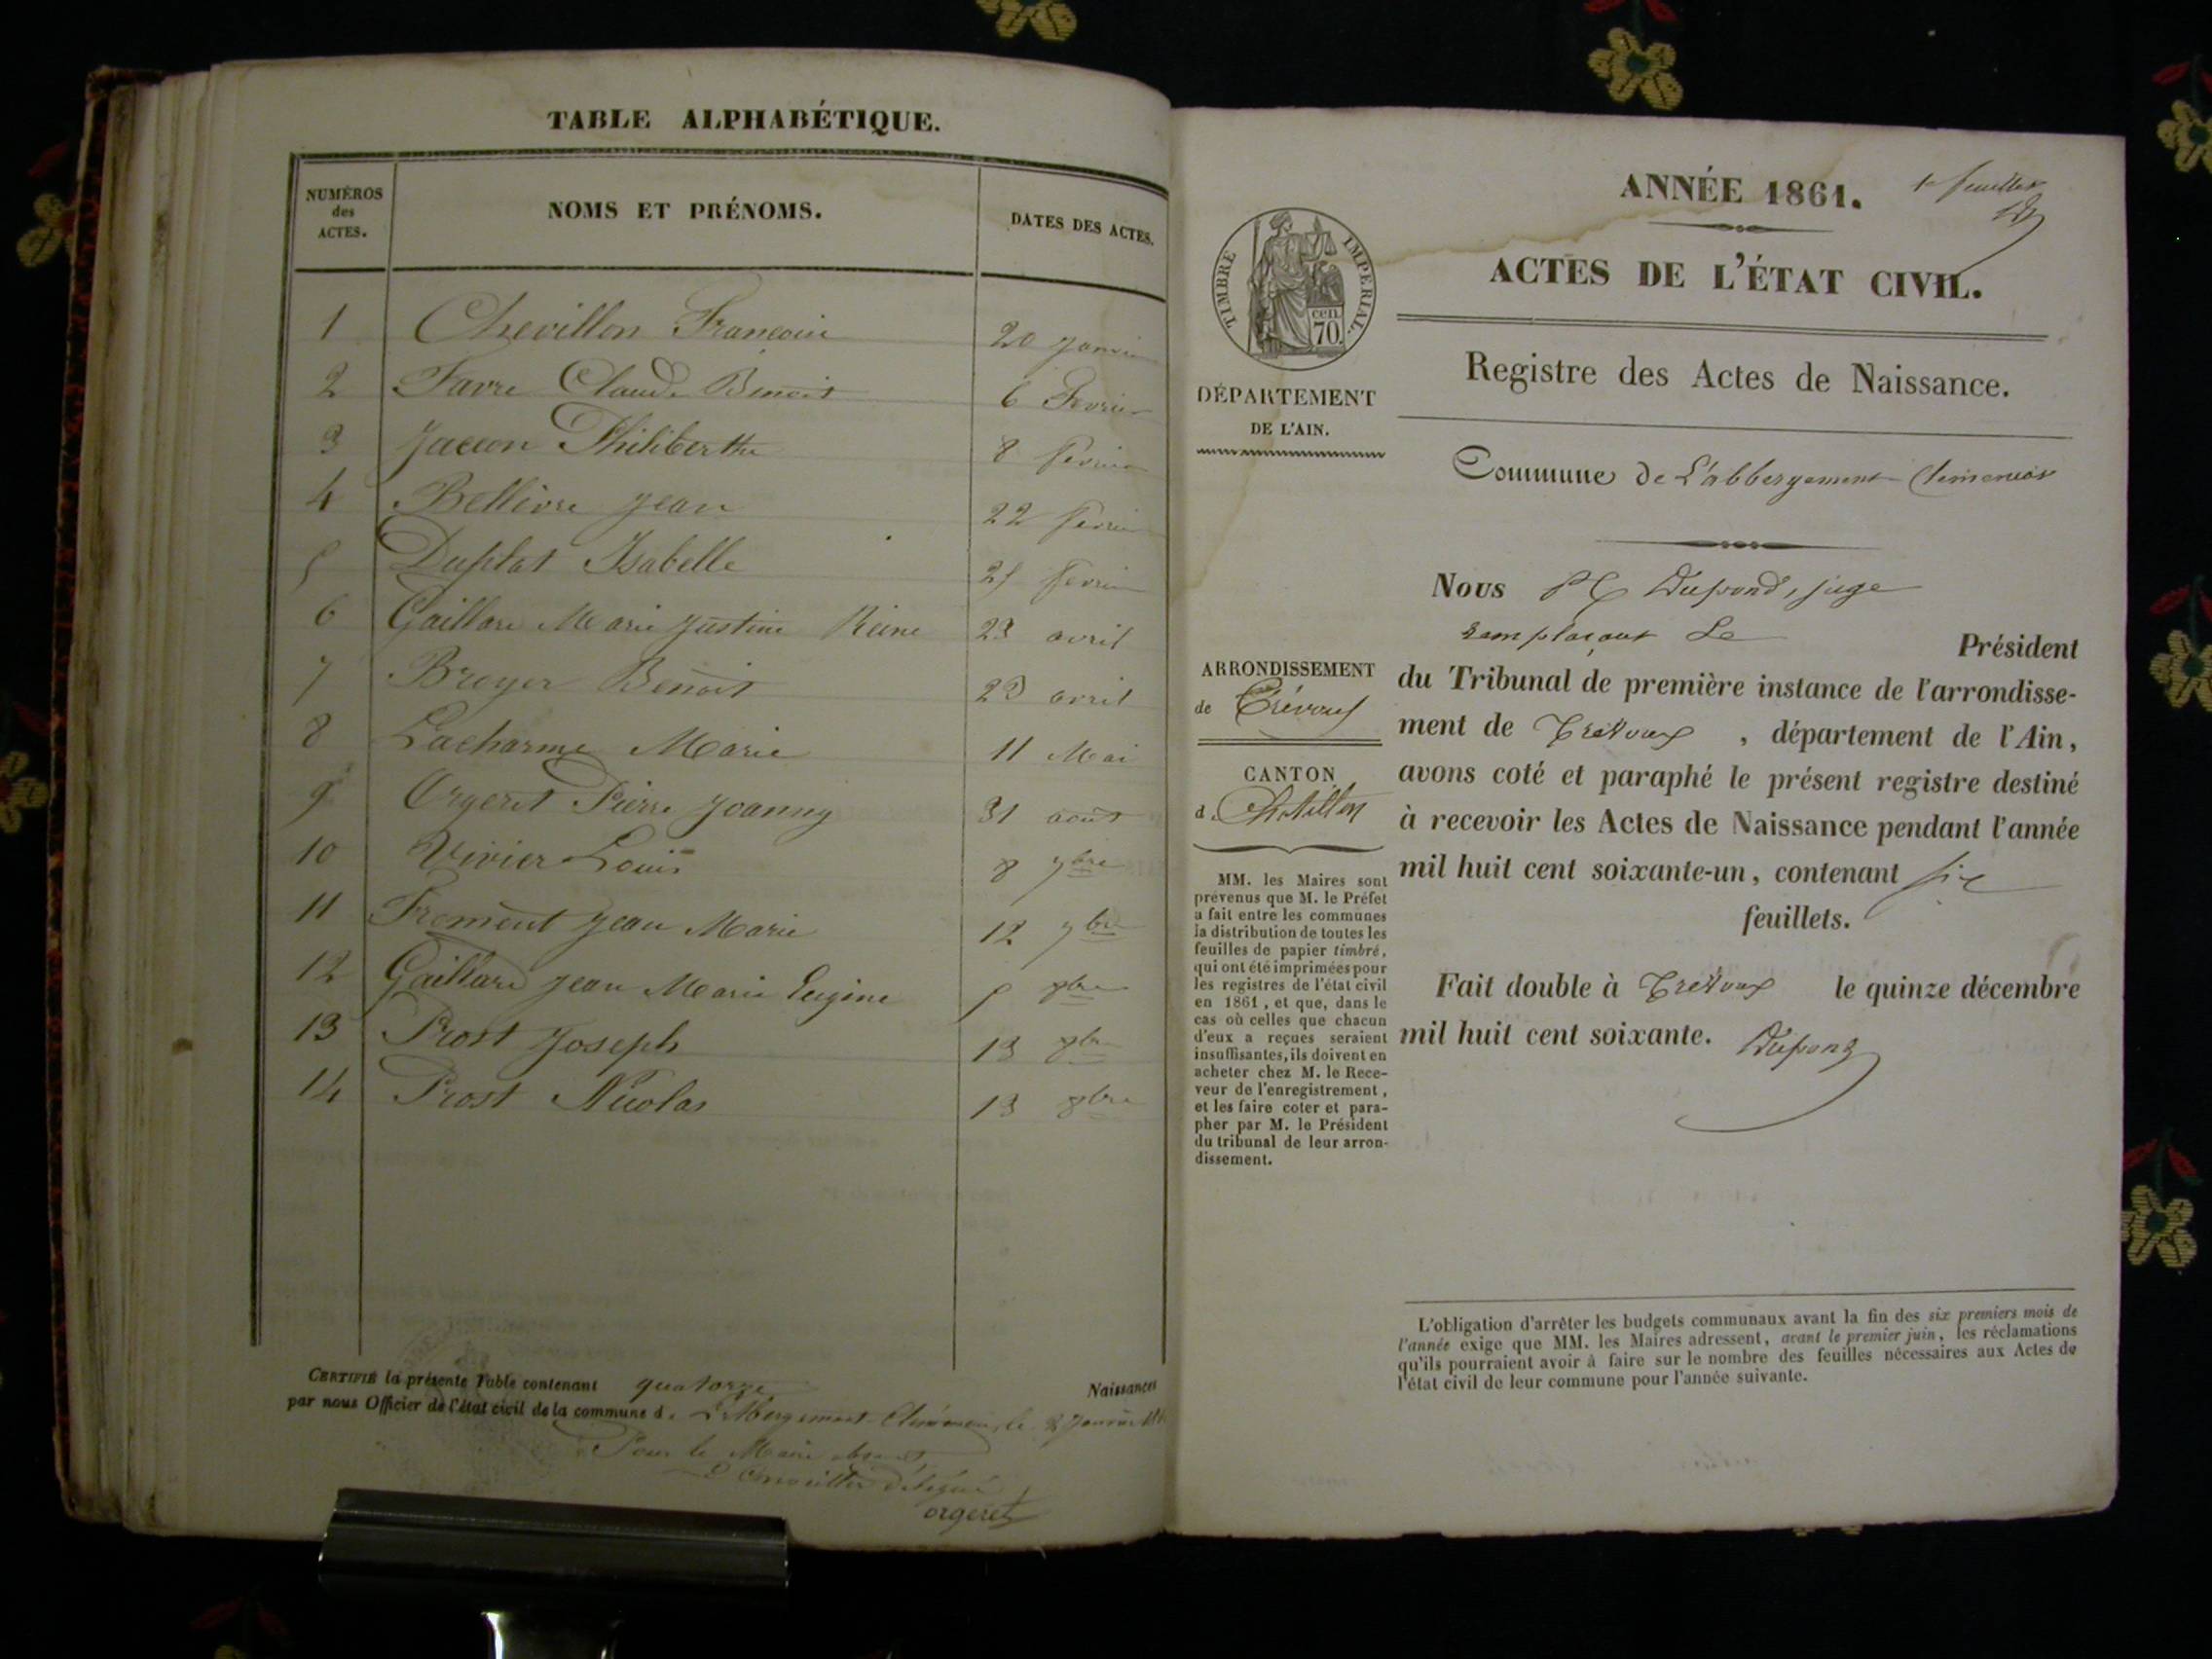 TABLE ALPHABÉTIQUE.
NUMÉROS des ACTES. NOMS ET PRÉNOMS. DATES DES ACTES.
1 Chevillon François 20 Janvier
2 Favre Claude Benoit 6 Fevrier
3 Jacson Philiberthe 8 fevrier
4 Bellièvre Jean 22 fevrier
5 Duplat Isabelle 25 fevrier
6 Gaillard Marie Justine Reine 23 avril
7 Breyer Benoit 23 avril
8 Lacharme Marie 11 Mai
9 Orgeret Pierre Joanny 31 août
10 Vivier Louis 8 7bre
11 Froment Jean Marie 12 7bre
12 Gaillard Jean Marie Eugine 8bre
13 Prost Joseph 13 8bre
14 Prost Nicolas 13 8bre
CERTIFIÉ la présente Table contenant quatorze Naissances
par nous Officier de l'état civil de la commune d. L'Abergement Clémencia, le 2 Janvier
Pour le Maire absent
Le Conseiller délégué
orgeret
ANNÉE 1861.
1er feuillet
ACTES DE L'ÉTAT CIVIL.
TIMBRE IMPERIAL.
cen. 70.
Registre des Actes de Naissance.
DÉPARTEMENT
DE L'AIN.
Commune de L'abbergement Clemencias
Nous Dupond, juge
remplaçant Le Président
du Tribunal de première instance de l'arrondisse-
ment de Trévoux , département de l'Ain,
avons coté et paraphé le présent registre destiné
à recevoir les Actes de Naissance pendant l'année
mil huit cent soixante-un, contenant six
feuillets.
Fait double à Trévoux le quinze décembre
mil huit cent soixante. Dupond
ARRONDISSEMENT
de Trévoux
CANTON
d. Chatillon
MM. les Maires sont
prévenus que M. le Préfet
a fait entre les communes
la distribution de toutes les
feuilles de papier timbré,
qui ont été imprimées pour
les registres de l'état civil
en 1861, et que, dans le
cas où celles que chacun
d'eux a reçues seraient
insuffisantes, ils doivent en
acheter chez M. le Rece-
veur de l'enregistrement,
et les faire coter et para-
pher par M. le Président
du tribunal de leur arron-
dissement.
L'obligation d'arrêter les budgets communaux avant la fin des six premiers mois de
l'année exige que MM. les Maires adressent, avant le premier juin, les réclamations
qu'ils pourraient avoir à faire sur le nombre des feuilles nécessaires aux Actes de
l'état civil de leur commune pour l'année suivante.